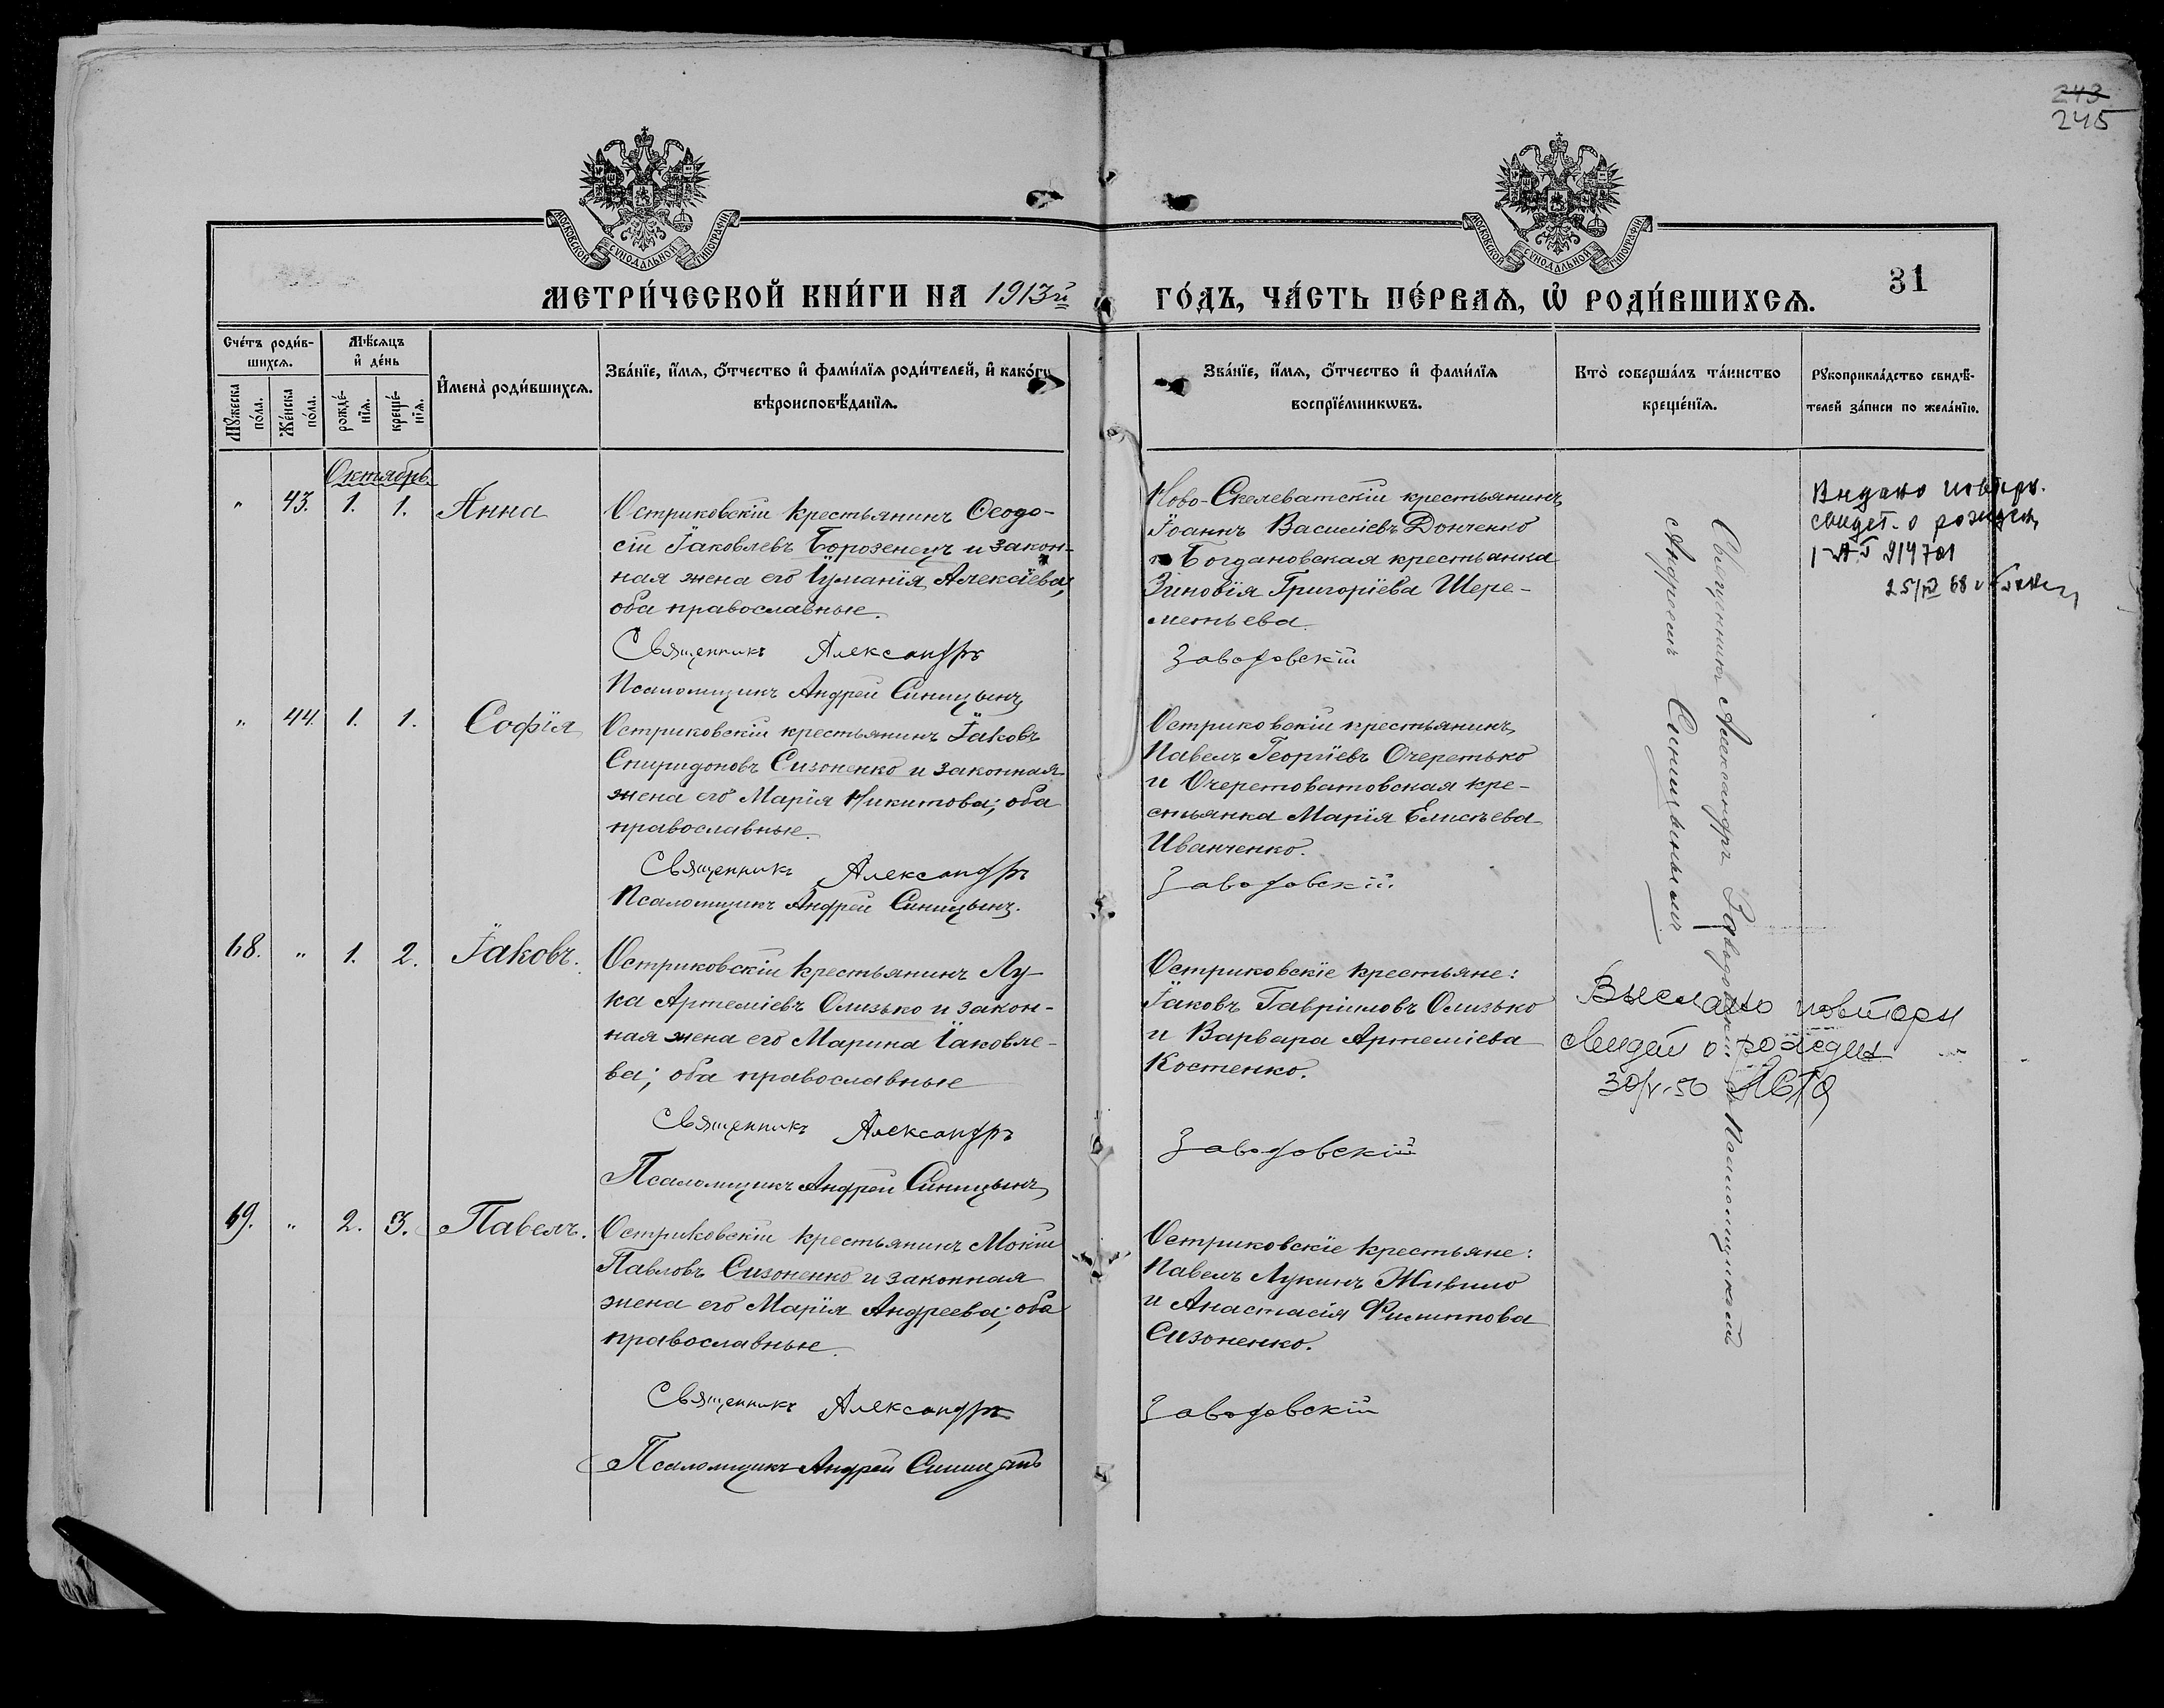 243
245
МОСКОВСКОЙ СѴНОДАЛЬНОЙ ТИПОГРАФІИ
МОСКОВСКОЙ СѴНОДАЛЬНОЙ ТИПОГРАФІИ
МЕТРИ́ЧЕСКОЙ КНИ́ГИ НА 1913й ГО́ДЪ, ЧА́СТЬ ПЕ́РВАѦ, Ѡ҆ РОДИ́ВШИХСѦ.
31
Сче́тъ роди́в-
шихсѧ.
Мꙋ́жеска
по́ла.
Же́нска
по́ла.
Мѣ́сѧцъ
и҆ де́нь
рожде́-
нїѧ.
креще́-
нїѧ.
И҆мена̀ роди́вшихсѧ.
Зва́нїе, и҆́мѧ, ѻ҆́тчество и҆ фами́лїѧ роди́телей, и҆ како́гѡ
вѣроисповѣ́данїѧ.
Зва́нїе, и҆́мѧ, ѻ҆́тчество и҆ фами́лїѧ
воспрїе́мникѡвъ.
Кто̀ соверша́лъ та́инство
креще́нїѧ.
Рꙋкоприкла́дство свидѣ́-
телей за́писи по жела́нїю.
Октябрь
" 43. 1. 1. Анна
Остриковскій крестьянинъ Ѳеодо-
сій Іаковлевъ Борозенецъ и закон-
ная жена его Іуманія Алексіева,
оба православные.
Священникъ Александръ
Псаломщикъ Андрей Синицынъ
Ново-Скелеватскій крестьянинъ
Іоаннъ Василіевъ Донченко
и Богдановская крестьянка
Зиновія Григоріева Шере-
метьева
Заводовскій
Священникъ Александръ Заводовскій съ Псаломщикомъ
Андреемъ Синицынымъ
Видано повторн.
свидет. о рожден,
914701
" 44. 1. 1. Софія
Остриковскій крестьянинъ Іаковъ
Спиридоновъ Сизоненко и законная
жена его Марія Никитова; оба
православные.
Священникъ Александръ
Псаломщикъ Андрей Синицынъ.
Остриковскій крестьянинъ
Павелъ Георгіевъ Очеретько
и Очеретоватовская кре-
стьянка Марія Елисѣева
Иванченко.
Заводовскій
68. " 1. 2. Іаковъ.
Остриковскій крестьянинъ Лу-
ка Артеміевъ Олизько и закон-
ная жена его Марина Іаковле-
ва; оба православные
Священникъ Александръ
Псаломщикъ Андрей Синицынъ
Остриковскіе крестьяне:
Іаковъ Гавріиловъ Олизько
и Варвара Артеміева
Костенко.
Заводовскій
Выслано повторн
свидет о рожден
30/V-50
69. " 2. 3. Павелъ.
Остриковскій крестьянинъ Мокій
Павловъ Сизоненко и законная
жена его Марія Андреева; оба
православные.
Священникъ Александръ
Псаломщикъ Андрей Синицынъ
Остриковскіе крестьяне:
Павелъ Лукинъ Живило
и Анастасія Филиппова
Сизоненко.
Заводовскій